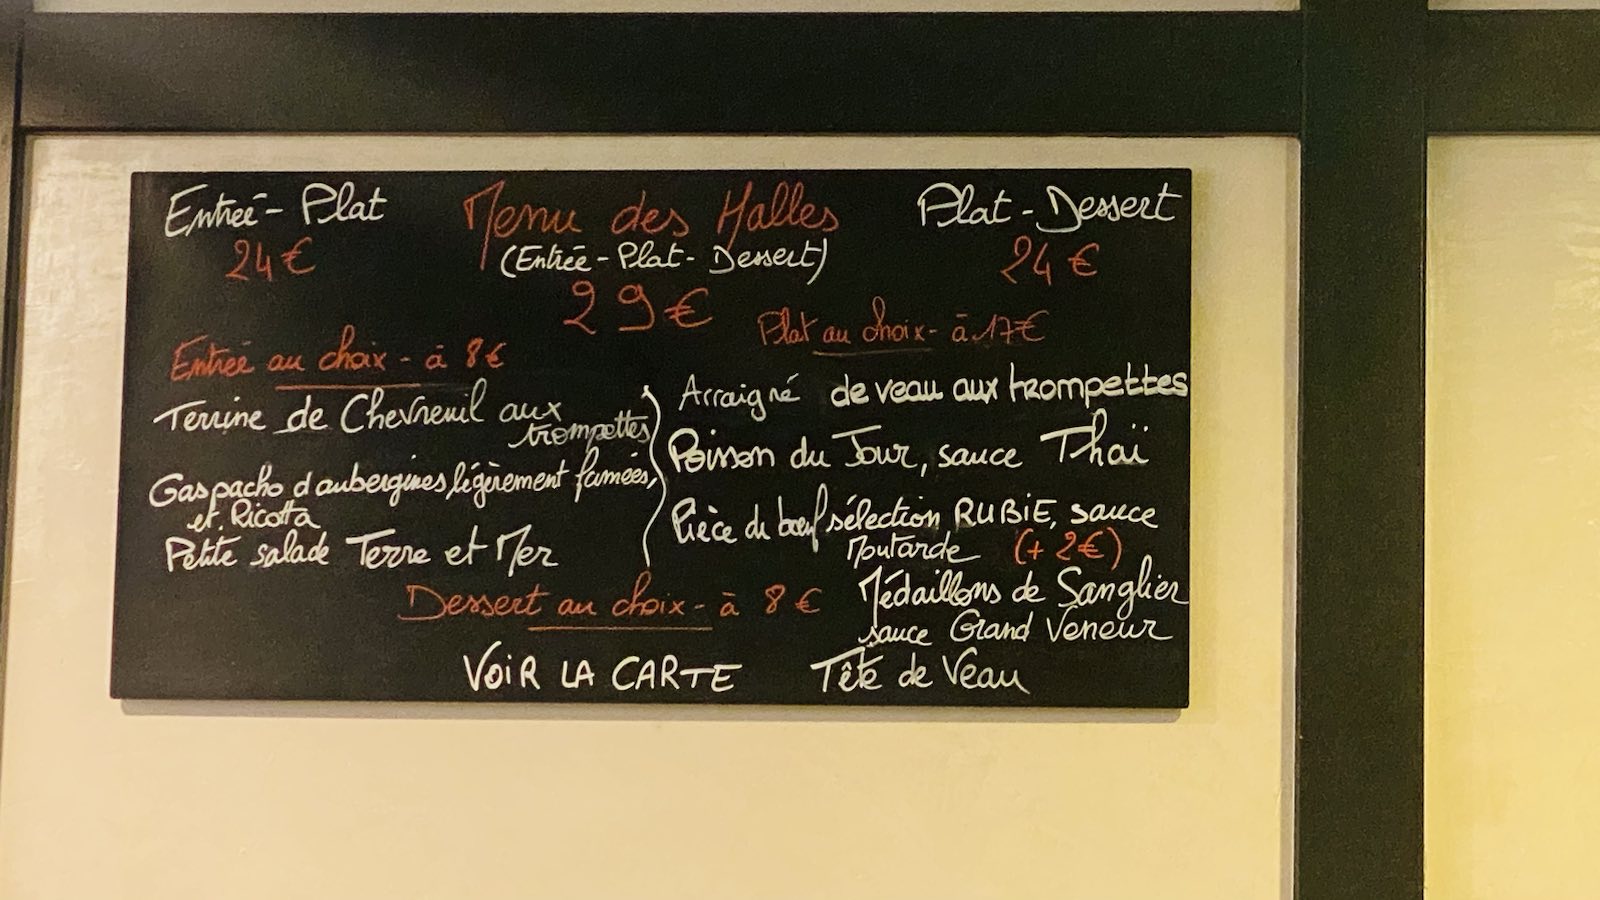 Entrée - Plat
24€
Menu des Halles
(Entrée - Plat - Dessert)
29€
Plat - Dessert
24€
Entrée au choix - à 8€
Terrine de Chevreuil aux
trompettes
Gaspacho d'aubergines légèrement fumées,
et Ricotta
Petite salade Terre et Mer
Plat au choix - à 17€
Arraigné de veau aux trompettes
Poisson du Jour, sauce Thaï
Pièce de bœuf sélection RUBIE, sauce
Moutarde (+ 2€)
Médaillons de Sanglier
sauce Grand Veneur
Tête de Veau
Dessert au choix - à 8€
VOIR LA CARTE